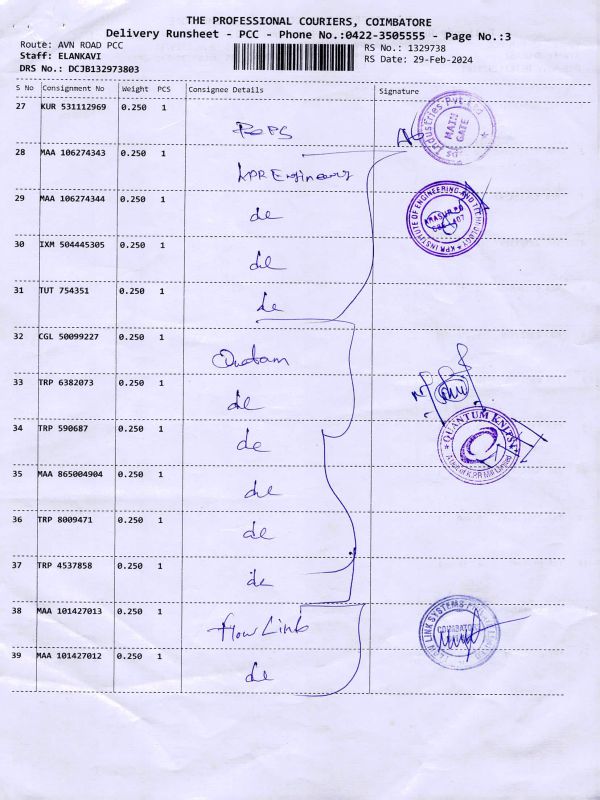 THE PROFESSIONAL COURIERS, COIMBATORE
Delivery Runsheet - PCC - Phone No.:0422-3505555 - Page No.:3
Route: AVN ROAD PCC RS No.: 1329738
Staff: ELANKAVI RS Date: 29-Feb-2024
DRS No.: DCJB132973803
S No Consignment No Weight PCS Consignee Details Signature
27 KUR 531112969 0.250 1
MAIN GATE
28 MAA 106274343 0.250 1
KPR Engineering
29 MAA 106274344 0.250 1
de
KPR INSTITUTE OF ENGINEERING AND TECHNOLOGY
30 IXM 504445305 0.250 1
de
31 TUT 754351 0.250 1
de
32 CGL 50099227 0.250 1
Quantam
33 TRP 6382073 0.250 1
de
34 TRP 590687 0.250 1
de
QUANTUM KNITS
35 MAA 865004904 0.250 1
de
36 TRP 8009471 0.250 1
de
37 TRP 4537858 0.250 1
de
38 MAA 101427013 0.250 1
flow Link
LINK SYSTEMS
39 MAA 101427012 0.250 1
de